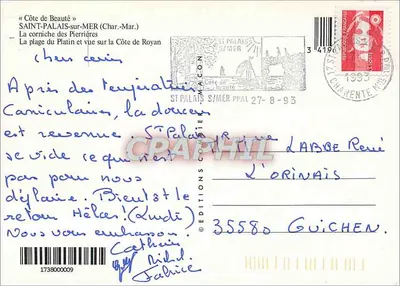 « Côte de Beauté »
SAINT-PALAIS-sur-MER (Char.-Mar.)
La corniche des Pierrières
La plage du Platin et vue sur la Côte de Royan
Chers amis
Après des températures
Caniculaires, la douceur
est revenue. St Palais
se vide ce qui n'est
pas pour nous
déplaire. Bientôt le
retour Hélas! (Lundi)
Nous vous embrassons.
Catherine
Michel
Fabrice
1738000009
© EDITIONS
MACON
3 4196
ST PALAIS
S/MER
ST PALAIS S/MER PPAL 27-8-93
1993
CHARENTE MME
CPARPHIL
LABBE René
L'ORINAIS
35580 GUICHEN.